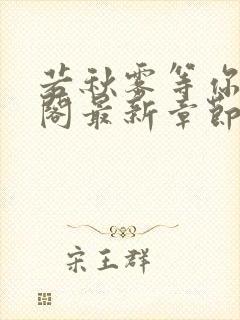 若秋雾等你
阁最新章节
宋王群